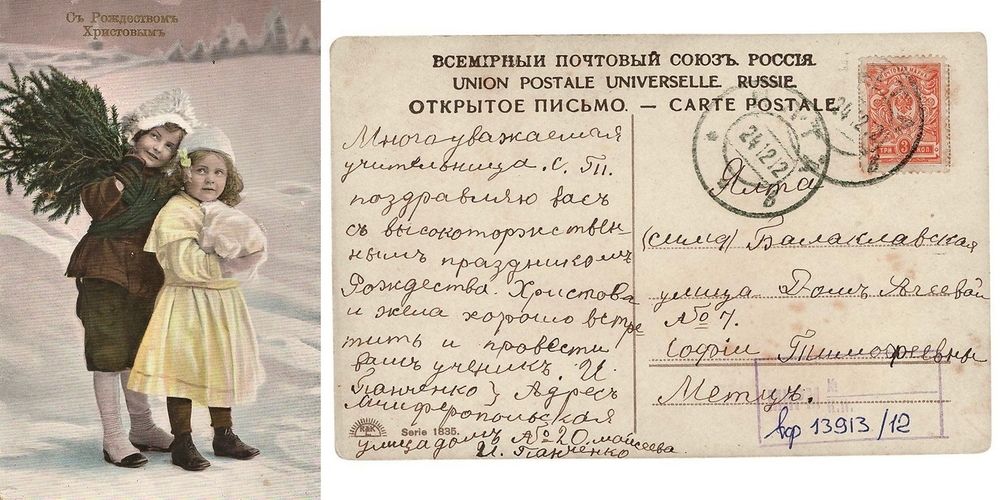 Съ Рождествомъ
Христовымъ
ВСЕМІРНЫЙ ПОЧТОВЫЙ СОЮЗЪ. РОССІЯ.
UNION POSTALE UNIVERSELLE. RUSSIE.
ОТКРЫТОЕ ПИСЬМО. — CARTE POSTALE.
Многоуважаемая
учительница. С. Т.
поздравляю васъ
съ высокоторжествен
нымъ праздникомъ
Рождества. Христова
и жела хорошо встре
тить и провести
вашъ ученик. И.
Панченко Адресъ
Симферопольская
улица домъ № 20. моисеева
И. Панченко
Serie 1835.
24 12 12
Ялта
Балаклавская
улица Домъ
№ 7.
Софіи Тимофеевны
Метцъ.
ТРИ 3 КОП.
вф 13913/12